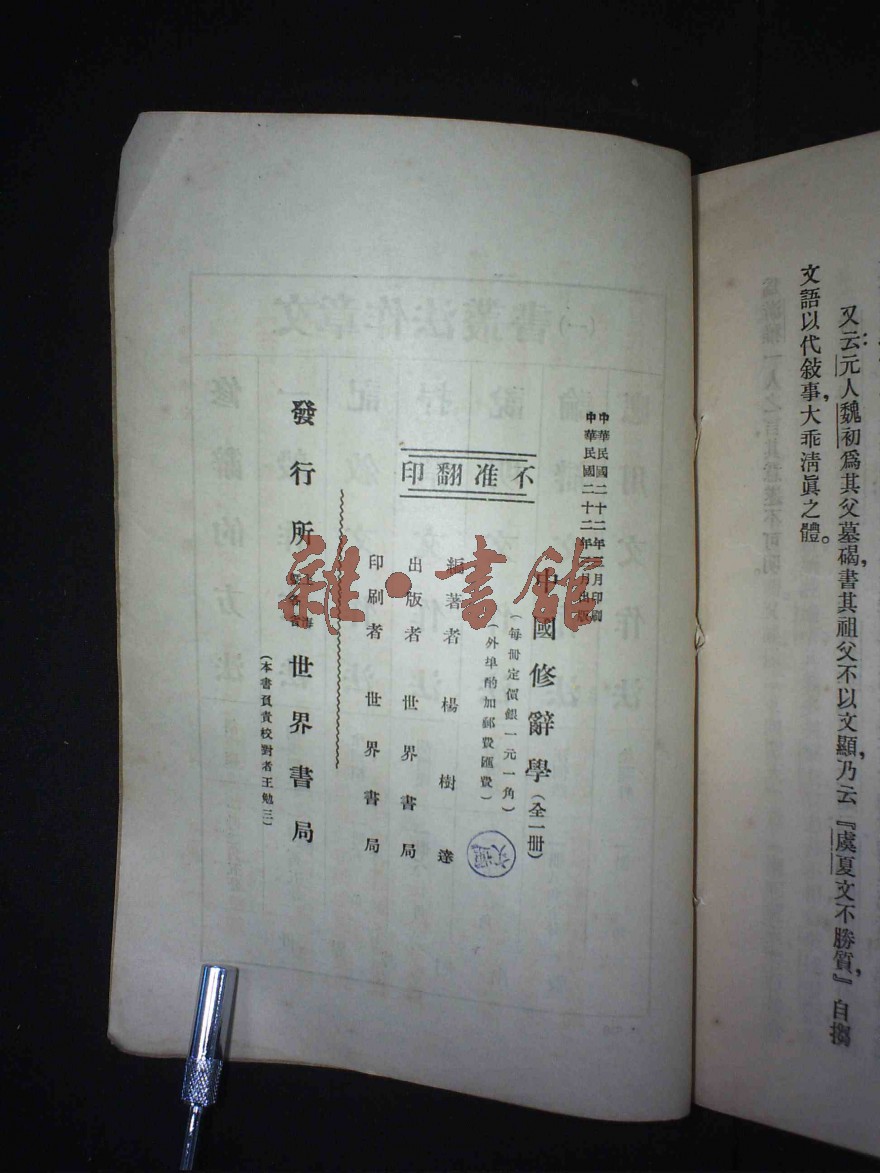 又云元人魏初爲其父墓碣，書其祖父不以文顯，乃云『虞夏文不勝質，』自擬
文語以代敍事，大乖淸眞之體。
中華民國二十二年 月印刷
中華民國二十二年 月出版
中國修辭學（全一冊）
（每冊定價銀一元一角）
（外埠酌加郵費匯費）
不准翻印
編著者 楊樹達
出版者 世界書局
印刷者 世界書局
發行所 上海 各省 世界書局
（本書負責校對者王勉三）
雜·書館